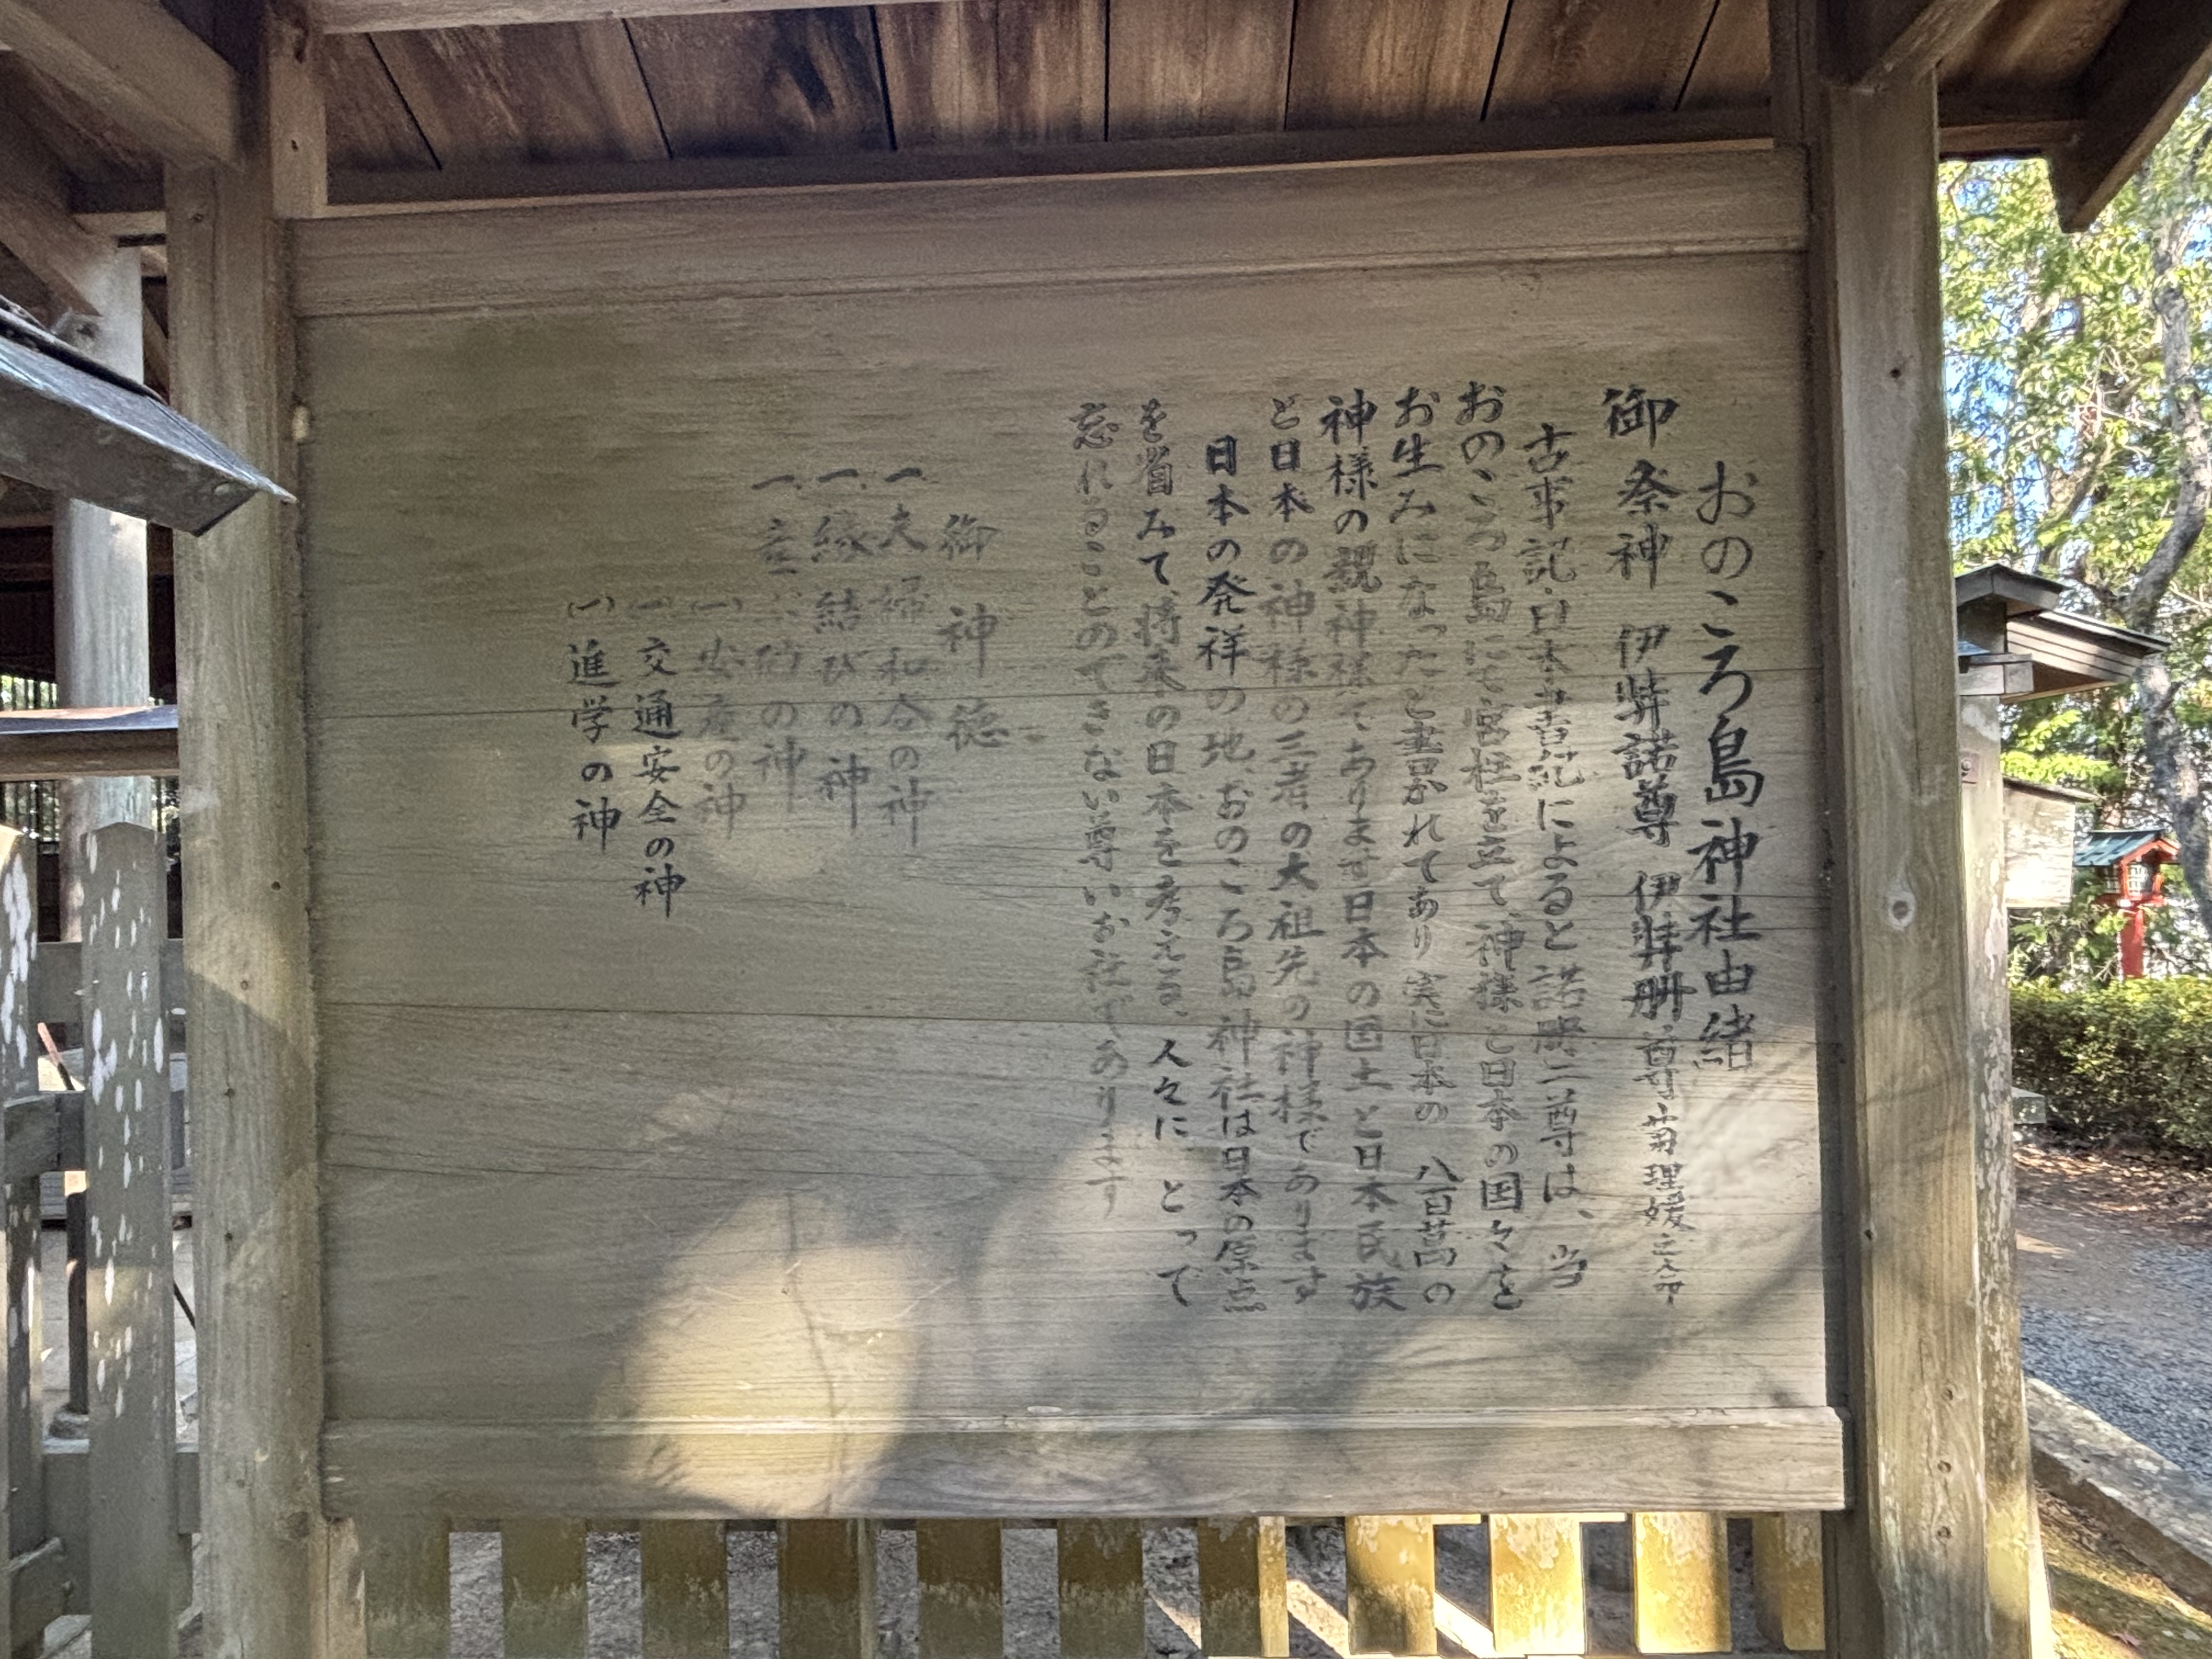 おのころ島神社由緒
御祭神 伊弉諾尊 伊弉冊尊 菊理媛之命
古事記・日本書紀によると諾冊二尊は、当
おのころ島にて宮柱を立て、神様と日本の国々を
お生みになったと書かれてあり 実に日本の 八百萬の
神様の親神様であります 日本の国土と日本民族
と日本の神様の三者の大祖先の神様であります
日本の発祥の地、おのころ島神社は日本の原点
を省みて、将来の日本を考える、人々に、とって
忘れることのできない尊いお社であります
御神徳
一、夫婦和合の神
一、縁結びの神
一、の神
(一)安産の神
(一)交通安全の神
(一)進学の神